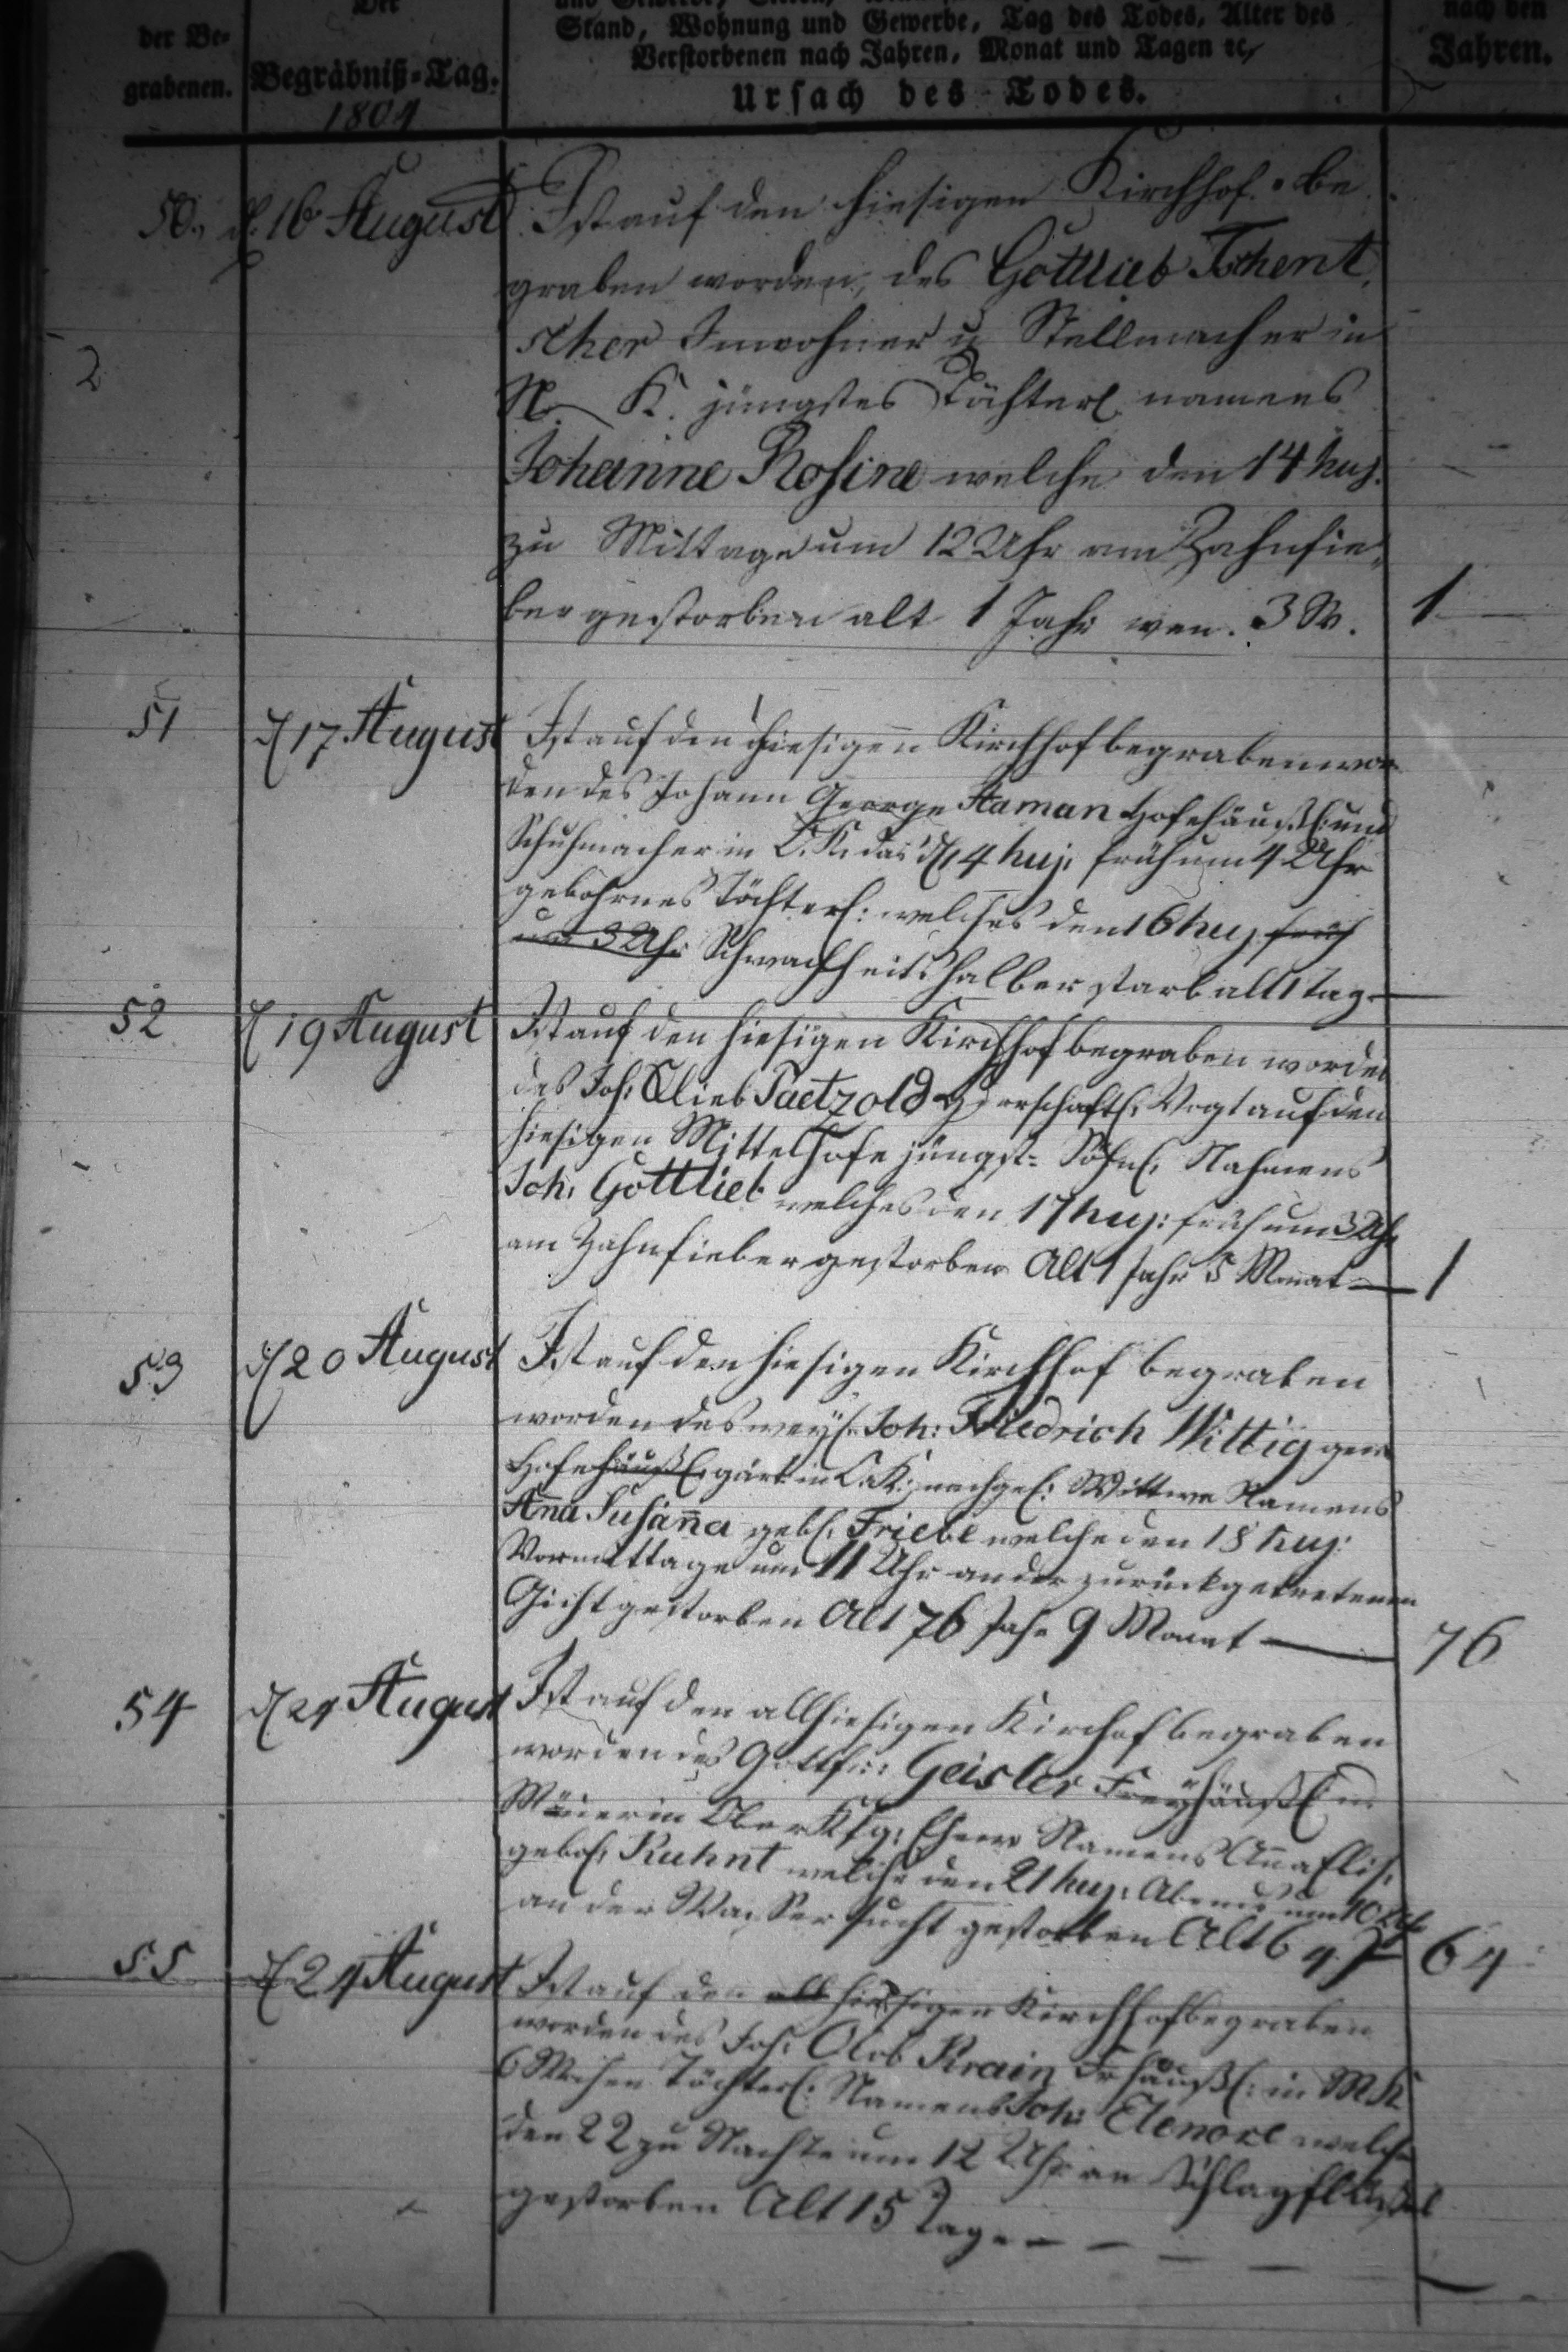 Der
Stand, Wohnung und Gewerbe, Tag des Todes, Alter des
nach den
der Be-
Verstorbenen nach Jahren, Monat und Tagen ec.
Jahren.
grabenen.
Begräbniß-Tag.
Ursach des Todes.
1804
50. d. 16 August
Ist auf den hiesigen Kirchhof be
graben worden, des Gottlieb Tschent,
scher Inwohner u Stellmacher in
N. K. jüngstes Töchterl. namens
Johanne Rosine welche den 14 huj.
zu Mittage um 12 Uhr am Zahnfie,
ber gestorben alt 1 Jahr wen. 3 W. 1
51 d 17 August
Ist auf den hiesigen Kirchhof begraben wor
den des Johann George Haman Hofehäußl: und
Schuhmacher in O. K. das d 14 huj. früh um 4 Uhr
gebohrnes Töchterl: welches den 16 huj früh
um 3 Uhr Schwachheits halber starb alt 1 Tag
52 d 19 August
Ist auf den hiesigen Kirchhof begraben worden
des Joh. Glieb Paetzold Herrschaftl. Vogt auf den
hiesigen Mittelhofe jüngst= Söhnl. Nahmens
Joh. Gottlieb welches den 17 huj: früh um 3 Uhr
am Zahnfieber gestorben Alt 1 Jahr 5 Monat 1
53 d 20 August
Ist auf den hiesigen Kirchhof begraben
worden des weyl. Joh: Friedrich Wittig gew
Hofehäußl. gärt. in O. K: nachgel: Wittwe Namens
Anna Susanna gebl. Friebe welche den 18 huj:
Vormittage um 11 Uhr an der zurückgetretenen
Gicht gestorben Alt 76 Jahr 9 Monat 76
54 d 24 August
Ist auf den allhiesigen Kirchhof begraben
worden des Gottfr: Geisler Freyhäußl u.
Mäuer in Ober Ksg: Ehew Namens Anna Elis.
gebl. Kuhnt welche den 21 huj: Abends um 10 Uhr
an der Wassersucht gestorben Alt 64 J 64
55 d 24 August
Ist auf den all hiesigen Kirchhof begraben
worden des Joh: Glob Krain Frhäußl: in M K
6 Wochen Töchterl: Namens Joh: Elenore welche
den 22 zu Nachte um 12 Uhr an Schlagfluß
gestorben Alt 15 Tage